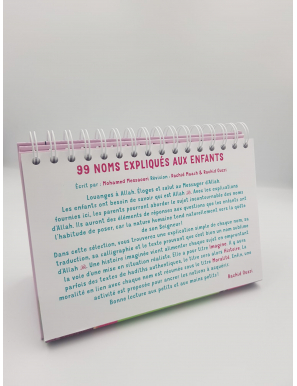 99 NOMS EXPLIQUÉS AUX ENFANTS
Écrit par : Mohamed Rachid Maach & Rachid Ouzzi
Louanges à Allah. Éloges et salut au Messager d'Allah.
Les enfants ont besoin de savoir qui est Allah. Avec les explications
fournies ici, les parents pourront aborder le sujet incontournable des noms
d'Allah. Ils auront des éléments de réponse aux questions que les enfants ont
l'habitude de poser, car la nature humaine tend naturellement vers la quête
de son Seigneur.
Dans cette sélection, vous trouverez une explication simple de chaque nom, sa
traduction, sa calligraphie et le texte prouvant que c'est bien un nom sublime
d'Allah. Une histoire imagée vient alimenter chaque sujet en empruntant
la voie d'une mise en situation réaliste. Elle a pour titre Imagine. Il y aura
parfois des textes de hadiths authentiques, le titre sera alors Histoire. La
moralité en lien avec chaque nom est résumée sous le titre Moralité. Enfin, une
activité est proposée pour ancrer les notions acquises.
Bonne lecture aux petits et aux moins petits!
Rachid